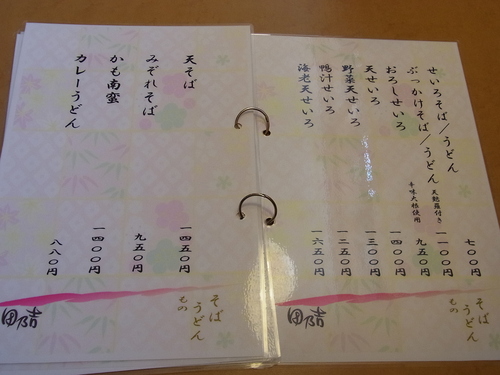 せいろそば/うどん 七〇〇円
ぶっかけそば/うどん 天麩羅付き 一一〇〇円
おろしせいろ 辛味大根使用 九五〇円
天せいろ 一四〇〇円
野菜天せいろ 一三〇〇円
鴨汁せいろ 一二五〇円
海老天せいろ 一六五〇円
そば
うどん
もの
天そば 一四五〇円
みぞれそば 九五〇円
かも南蛮 一四〇〇円
カレーうどん 八八〇円
そば
うどん
もの